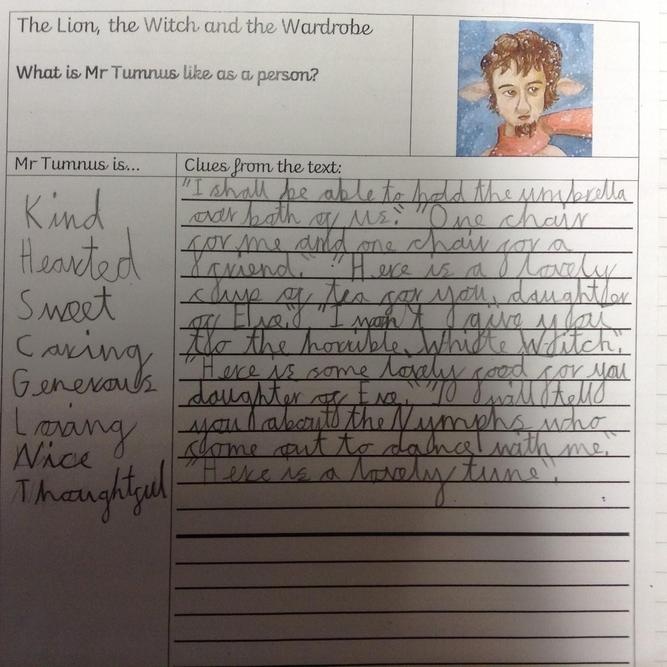 The Lion, the Witch and the Wardrobe
What is Mr Tumnus like as a person?
Mr Tumnus is...
Kind
Hearted
Sweet
Caring
Generous
Loving
Nice
Thoughtful
Clues from the text:
"I shall be able to hold the umbrella
over both of us." "One chair
for me and one chair for a
friend." "Here is a lovely
cup of tea for you, daughter
of Eve." "I won't give you
to the horrible White Witch."
"Here is some lovely food for you
daughter of Eve." "I will tell
you about the Nymphs who
come out to dance with me."
"Here is a lovely tune".